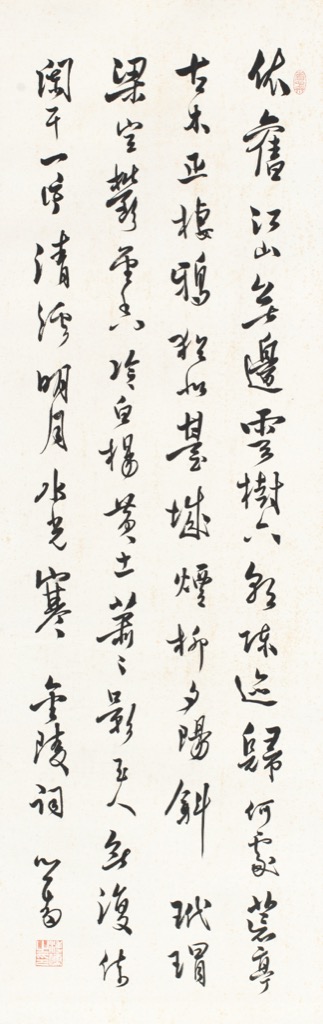 依舊江山無邊雲樹六朝陳迹歸何處荒亭
古木亞棲鴉猶似臺城煙柳夕陽斜 玳瑁
梁空鬱金香冷白楊黃土蕭〻影玉人無復倚
闌干一片清淮明月水光寒 金陵詞 心畬